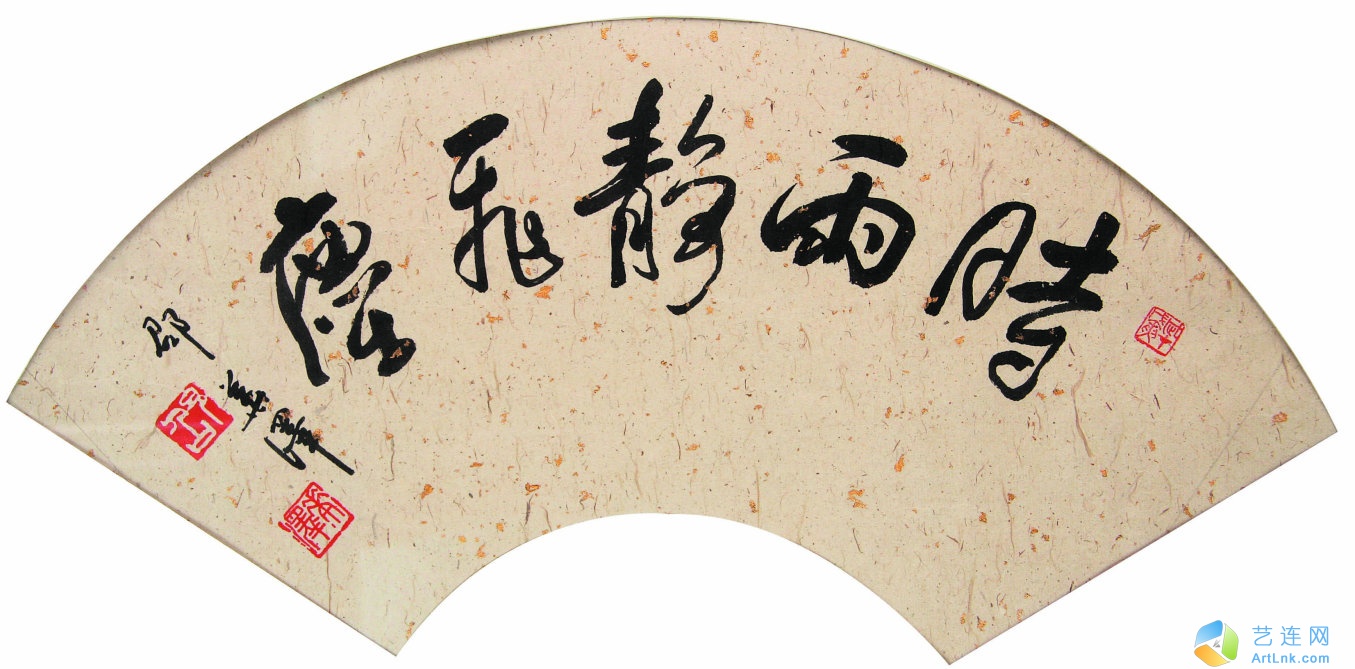 時雨靜飛塵
邵華澤
艺连网
ArtLnk.com